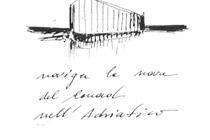 naviga la nave
del
nell'Adriatico